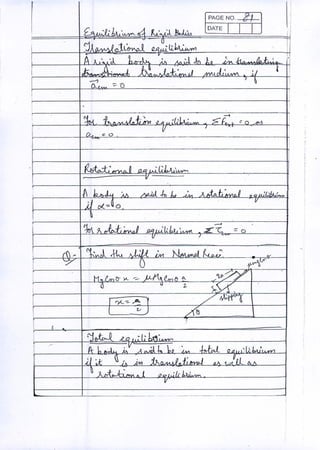 PAGE NO 21
DATE
Equilibrium of Rigid Bodies
Translational equilibrium
A rigid body is said to be in
translational medium, if
a⃗cm = 0
For translation equilibrium, ΣF⃗ext = 0, as
acm = 0.
Rotational equilibrium
A body is said to be in rotational equilibrium
if α = 0.
For rotational equilibrium, Στ⃗ = 0
Q:- Find the shift in Normal Reac.
Mg cosθ x = μMg cosθ a/2
slipping
θ
Total equilibrium
A body is said to be in total equilibrium
if it is in translational as well as
rotational equilibrium.